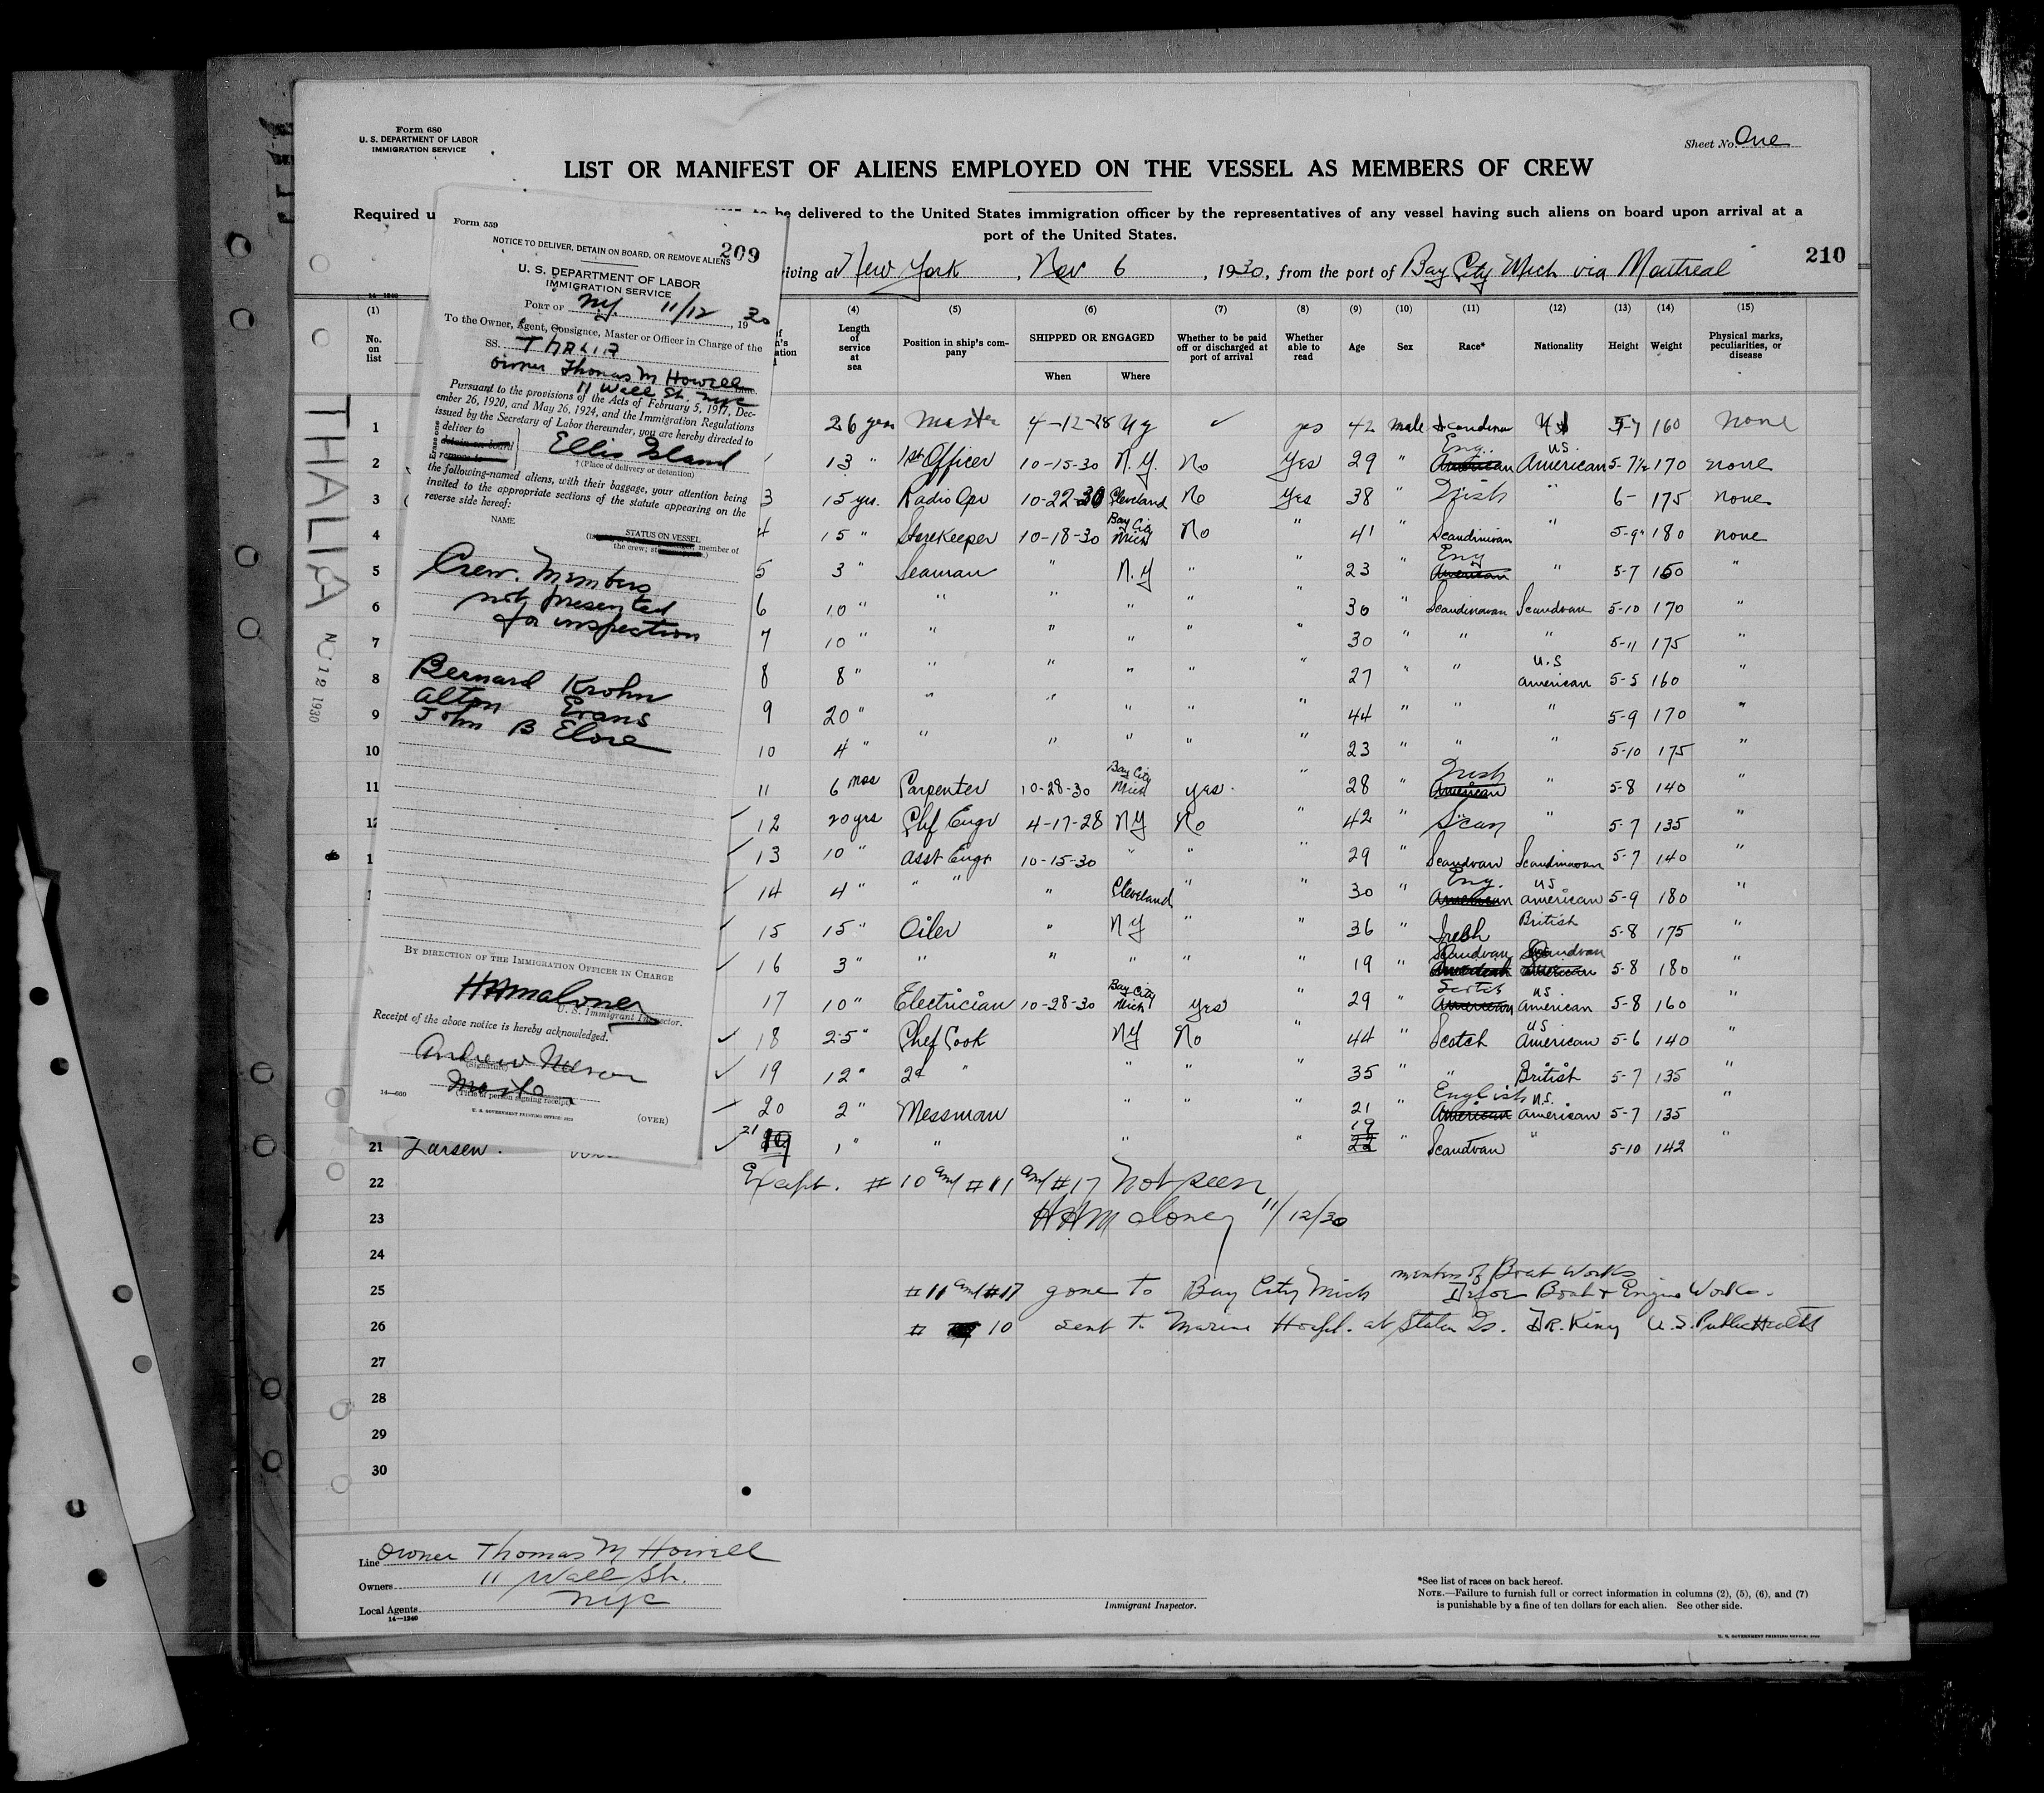 Form 680
U. S. DEPARTMENT OF LABOR
IMMIGRATION SERVICE
Sheet No. One
LIST OR MANIFEST OF ALIENS EMPLOYED ON THE VESSEL AS MEMBERS OF CREW
Required u
to be delivered to the United States immigration officer by the representatives of any vessel having such aliens on board upon arrival at a
port of the United States.
iving at New York, Nov 6, 1930, from the port of Bay City Mich via Montreal
210
Form 559
209
NOTICE TO DELIVER, DETAIN ON BOARD, OR REMOVE ALIENS
U. S. DEPARTMENT OF LABOR
IMMIGRATION SERVICE
PORT OF NY. 11/12, 1930
To the Owner, Agent, Consignee, Master or Officer in Charge of the
SS. THALIA
owner Thomas M Howell
11 Wall St. NYC
Pursuant to the provisions of the Acts of February 5, 1917, Dec-
ember 26, 1920, and May 26, 1924, and the Immigration Regulations
issued by the Secretary of Labor thereunder, you are hereby directed to
Erase one
deliver to
detain on board
remove to
Ellis Island
† (Place of delivery or detention)
the following-named aliens, with their baggage, your attention being
invited to the appropriate sections of the statute appearing on the
reverse side hereof:
NAME
STATUS ON VESSEL
member of
the crew;
Crew. Members
not presented
for inspection
Bernard Krohn
Alton Evans
John B
BY DIRECTION OF THE IMMIGRATION OFFICER IN CHARGE
HAMaloney
U. S. Immigrant Inspector.
Receipt of the above notice is hereby acknowledged.
Andrew Nelson
(Signature)
Master
(Title of person signing receipt)
14—600
U. S. GOVERNMENT PRINTING OFFICE
(OVER)
THALIA
12 1930
14—1240
(1) (4) (5) (6) (7) (8) (9) (10) (11) (12) (13) (14) (15)
No. on list
Length of service at sea
Position in ship's company
SHIPPED OR ENGAGED
When
Where
Whether to be paid off or discharged at port of arrival
Whether able to read
Age
Sex
Race*
Nationality
Height
Weight
Physical marks, peculiarities, or disease
1 26 yrs Master 4-12-28 NY ✓ yes 42 male Scandinav US 5-7 160 none
2 13 " 1st Officer 10-15-30 N.Y. No Yes 29 " Eng. American US American 5-7½ 170 none
3 3 15 yrs. Radio Opr 10-22-30 Cleveland No Yes 38 " Irish " 6- 175 none
4 4 15 " Storekeeper 10-18-30 Bay City Mich No " 41 " Scandinivan " 5-9 180 none
5 5 3 " Seaman " N.Y " " 23 " Eng American " 5-7 150 "
6 6 10 " " " " " " 30 " Scandinavan Scandvan 5-10 170 "
7 7 10 " " " " " 30 " " " 5-11 175 "
8 8 8 " " " " " " 27 " " U.S American 5-5 160 "
9 9 20 " " " " " " 44 " " " 5-9 170 "
10 10 4 " " " " " " 23 " " " 5-10 175 "
11 11 6 mos Carpenter 10-28-30 Bay City Mich yes " 28 " Irish American " 5-8 140 "
12 ✓ 12 20 yrs Chf Engr 4-17-28 NY No " 42 " Scan " 5-7 135 "
1 ✓ 13 10 " Asst Engr 10-15-30 " " " 29 " Scandvan Scandinavan 5-7 140 "
✓ 14 4 " " " " Cleveland " " 30 " Eng. American US American 5-9 180 "
✓ 15 15 " Oiler " NY " " 36 " Irish British 5-8 175 "
✓ 16 3 " " " " " " 19 " Scandvan American Scandvan American 5-8 180 "
17 10 " Electrician 10-28-30 Bay City Mich Yes " 29 " Scotch American US American 5-8 160 "
✓ 18 25 " Chef Cook NY No " 44 " Scotch US American 5-6 140 "
✓ 19 12 " 2d " " " " 35 " " British 5-7 135 "
20 2 " Messman " " " 21 " English American U.S. American 5-7 135 "
21 Larsen. ✓ 21 19 1 " " " " 19 22 " Scandvan " 5-10 142 "
22 Except. # 10 and # 11 and # 17 Not seen
23 HAMaloney 11/12/30
24
members of Boat Works
25 # 11 and # 17 gone to Bay City Mich Boat & Engine Works.
26 # 10 sent to Marine Hospl. at Staten Is. DR. King U.S. Public Health
27
28
29
30
Line owner Thomas M Howell
Owners 11 Wall St.
Local Agents NYC
14—1240
Immigrant Inspector.
*See list of races on back hereof.
NOTE.—Failure to furnish full or correct information in columns (2), (5), (6), and (7)
is punishable by a fine of ten dollars for each alien. See other side.
U. S. GOVERNMENT PRINTING OFFICE